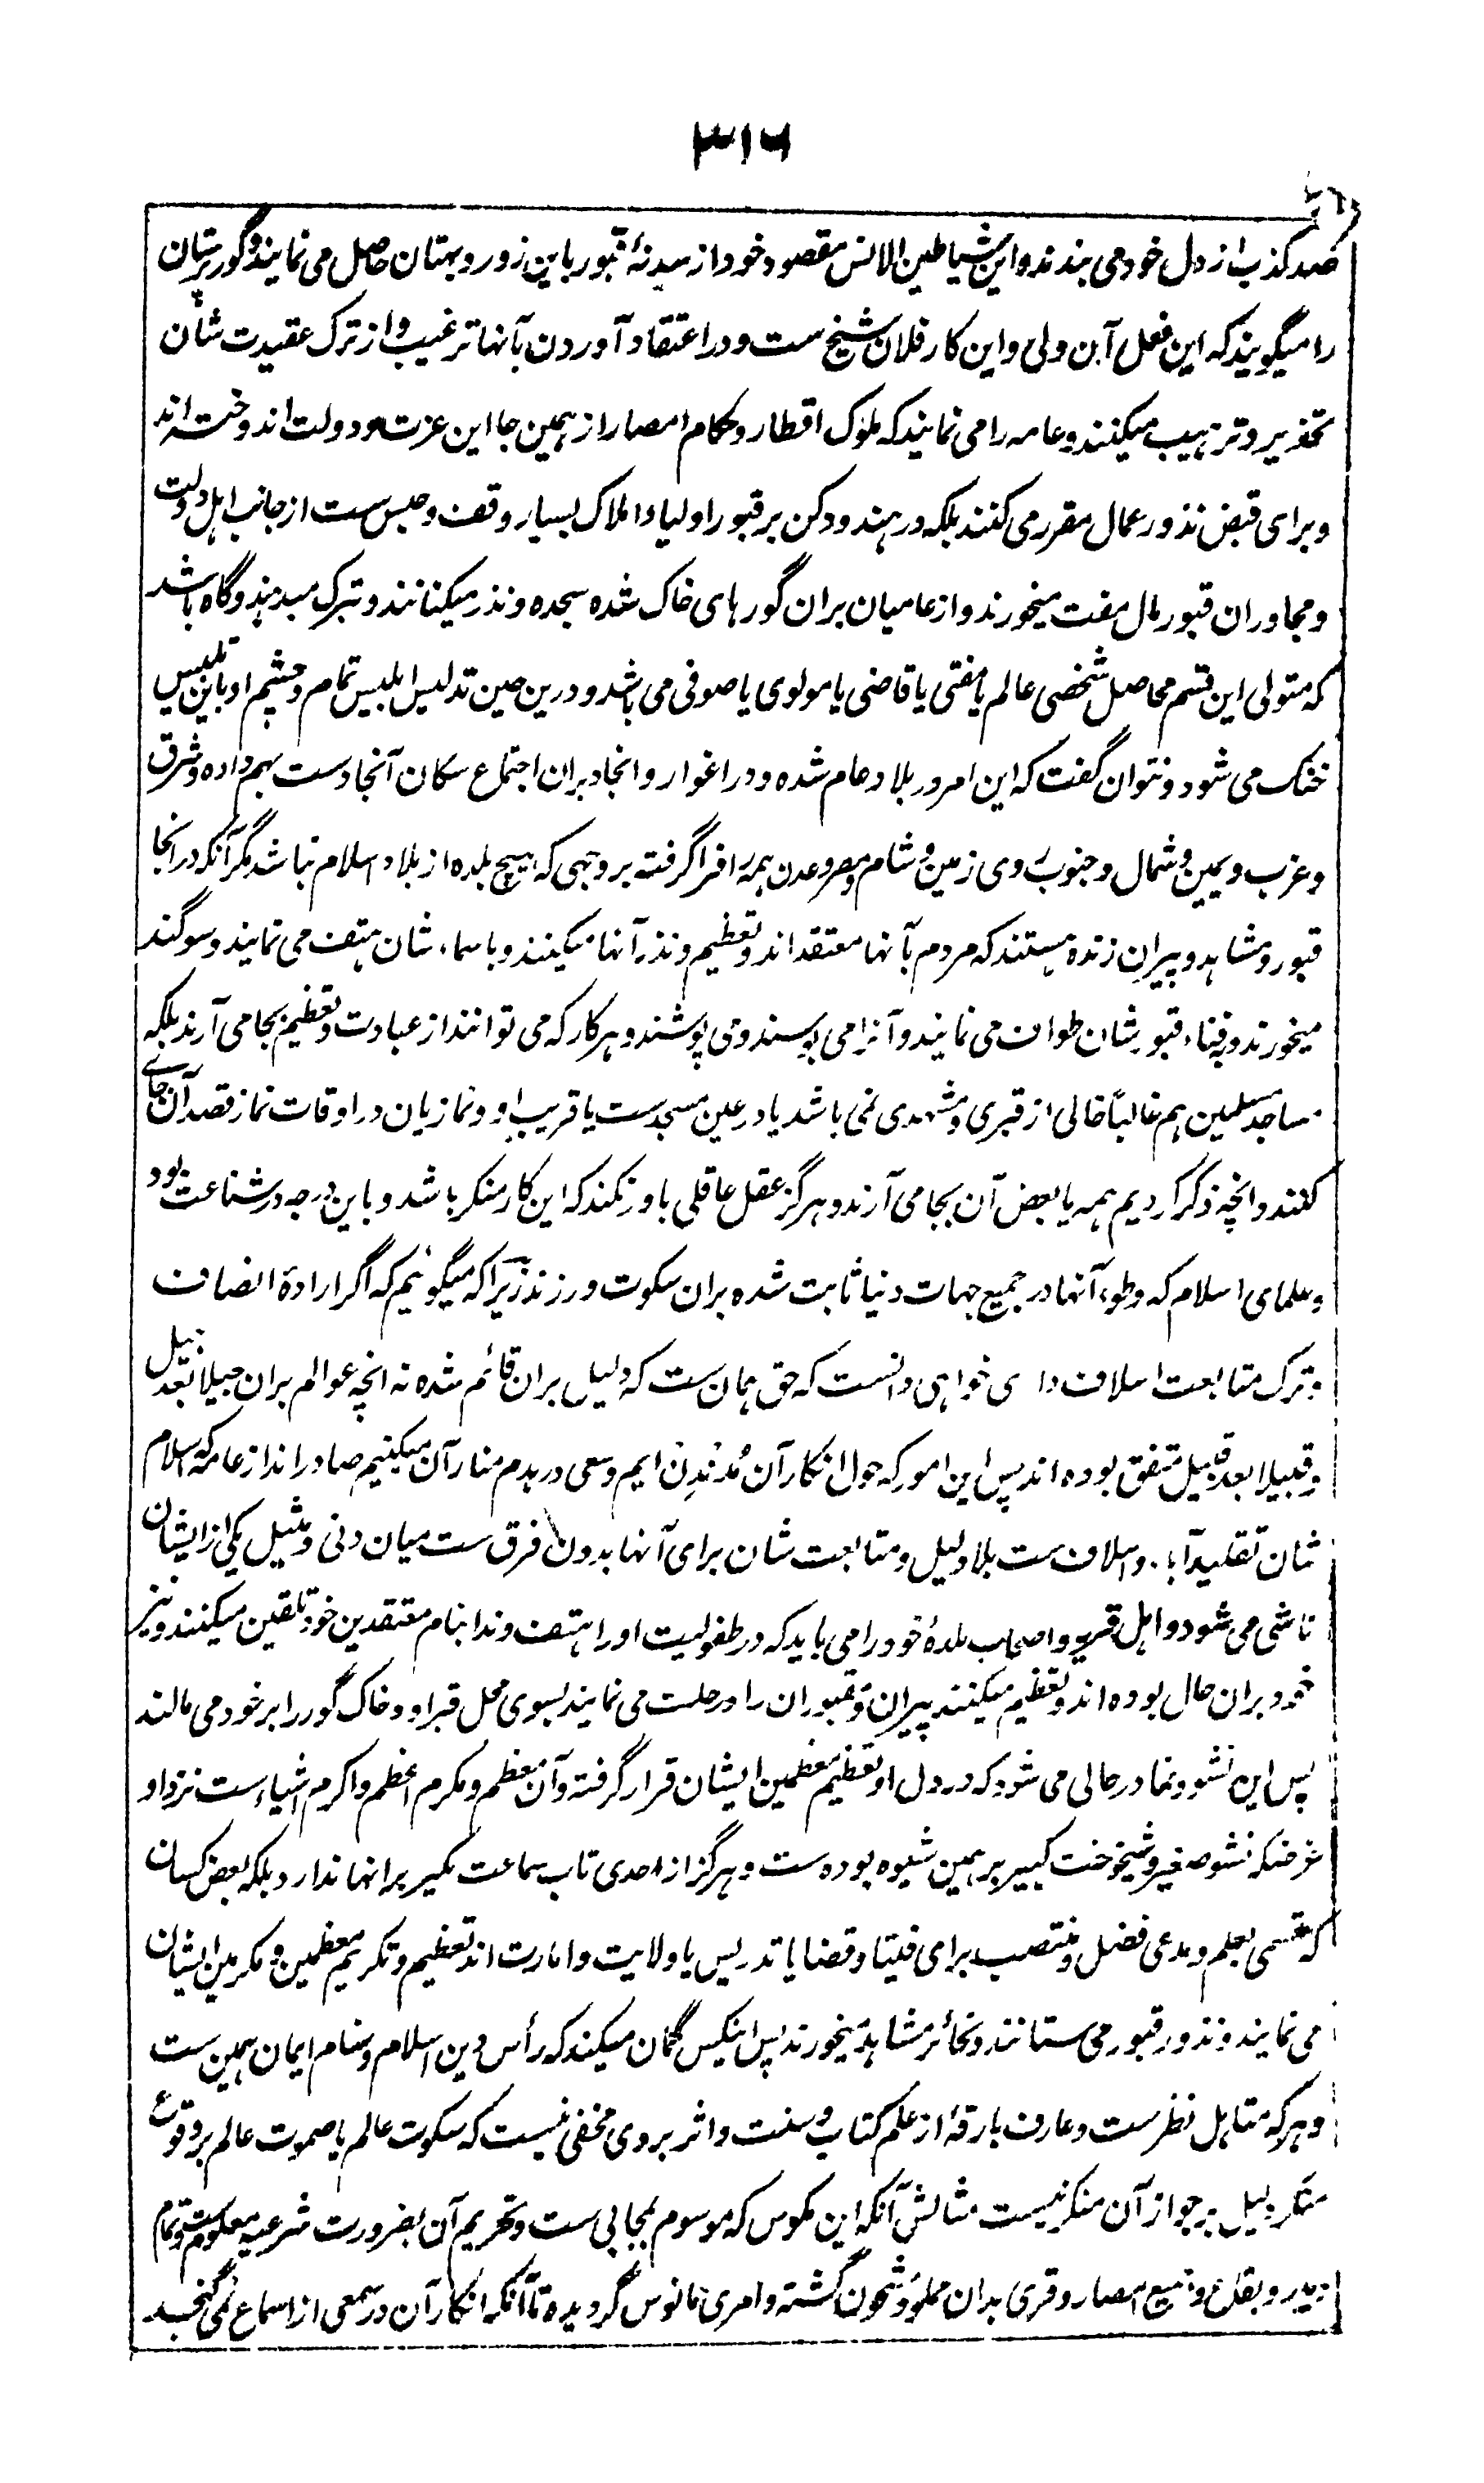 ۳۱۶
صد کذب از دل خود می بندند و این شیاطین الانس مقصود خود از سدنۀ قبور باین زور و بهتان حاصل می نمایند و گور پرستان
را میگویند که این فعل آن ولی و این کار فلان شیخ ست و در اعتقاد آوردن بآنها ترغیب و از ترک عقیدت شان
تحذیر و ترهیب میکنند و عامه را می نمایند که ملوک اقطار و حکام امصار از همین جا این عزت و دولت اندوخته اند
و برای قبض نذور عمال مقرر می کنند بلکه در هند و دکن بر قبور اولیاء املاک بسیار وقف و حبس ست از جانب اهل دولت
و مجاوران قبور مال مفت میخورند و از عامیان بران گورهای خاک شده سجده و نذر میکنانند و تبرک میدهند و گاه باشد
که متولی این قسم محاصل شخصی عالم یا مفتی یا قاضی یا مولوی یا صوفی می باشد و درین حین تدلیس ابلیس تمام و چشم او باین تلبیس
خنک می شود و نتوان گفت که این امر در بلاد عام شده و در اغوار و انجاد بران اجتماع سکان آنجا دست بهم داده و شرق
و غرب و یمین و شمال و جنوب روی زمین و شام و مصر و عدن همه را فرا گرفته بر وجهی که هیچ بلده از بلاد اسلام نباشد مگر آنکه در انجا
قبور و مشاهد و پیران زنده هستند که مردم بآنها معتقد اند و تعظیم و نذر آنها میکنند و باسماء شان هتف می نمایند و سوگند
میخورند و بفناء قبور شان طواف می نمایند و آنرا می بوسند و می پوشند و هر کار که می توانند از عبادت و تعظیم بجا می آرند بلکه
مساجد مسلمین هم غالباً خالی از قبری و مشهدی نمی باشد یا در عین مسجد ست یا قریب او و نمازیان در اوقات نماز قصد آن جای
کنند و انچه ذکر کردیم همه یا بعض آن بجا می آرند و هرگز عقل عاقلی باور نکند که این کار منکر باشد و باین درجه در شناعت بود
و علمای اسلام که وطوء آنها در جمیع جهات دنیا ثابت شده بران سکوت ورزند زیرا که میگوئیم که اگر ارادۀ انصاف
و ترک متابعت اسلاف داری خواهی دانست که حق همان ست که دلیل بران قائم شده نه انچه عوالم بران جیلا بعد جیل
و قبیلا بعد قبیل متفق بوده اند پس این امور که حول انکار آن مُدَندِن ایم و سعی در هدم منار آن میکنیم صادر اند از عامه که اسلام
شان تقلید آباء و اسلاف ست بلا دلیل و متابعت شان برای آنها بدون فرق ست میان دنی و مثیل یکی از ایشان
ناشی می شود و اهل قریه و اصحاب بلدۀ خود را می یابد که در طفولیت او را هتف و ندا بنام معتقدین خود تلقین میکنند و نیز
خود بران حال بوده اند و تعظیم میکنند پیران و قبوران را و رحلت می نمایند بسوی محل قبر او و خاک گور را بر خود می مالند
پس این نشو و نما در حالی می شود که در دل او تعظیم معظمین ایشان قرار گرفته و آن معظم و مکرم اعظم و اکرم اشیاء ست نزد او
غرضکه نشو صغیر و شیخوخت کبیر بر همین شیوه بوده ست و هرگز از احدی تاب سماعت نکیر برانها ندارد بلکه بعض کسان
که متسمی بعلم و مدعی فضل و منتصب برای فتیا و قضا یا تدریس یا ولایت و امارت اند تعظیم و تکریم معظمین و مکرمین ایشان
می نمایند و نذور قبور می ستانند و نحائر مشاهد میخورند پس اینکس گمان میکند که رأس دین اسلام و سنام ایمان همین ست
و هر که متاهل نظر ست و عارف بارقۀ از علم کتاب و سنت و اثر بروی مخفی نیست که سکوت عالم یا صموت عالم بر وقوع
منکر دلیل بر جواز آن منکر نیست مثالش آنکه این مکوس که موسوم بمجابی ست و تحریم آن بضرورت شرعیه معلوم ست و تمام
دیر و بقاع و جمیع امصار و قری بدان مملو و مشحون گشته و امری مانوس گردیده تا آنکه انکار آن در سمعی از اسماع نمی گنجد